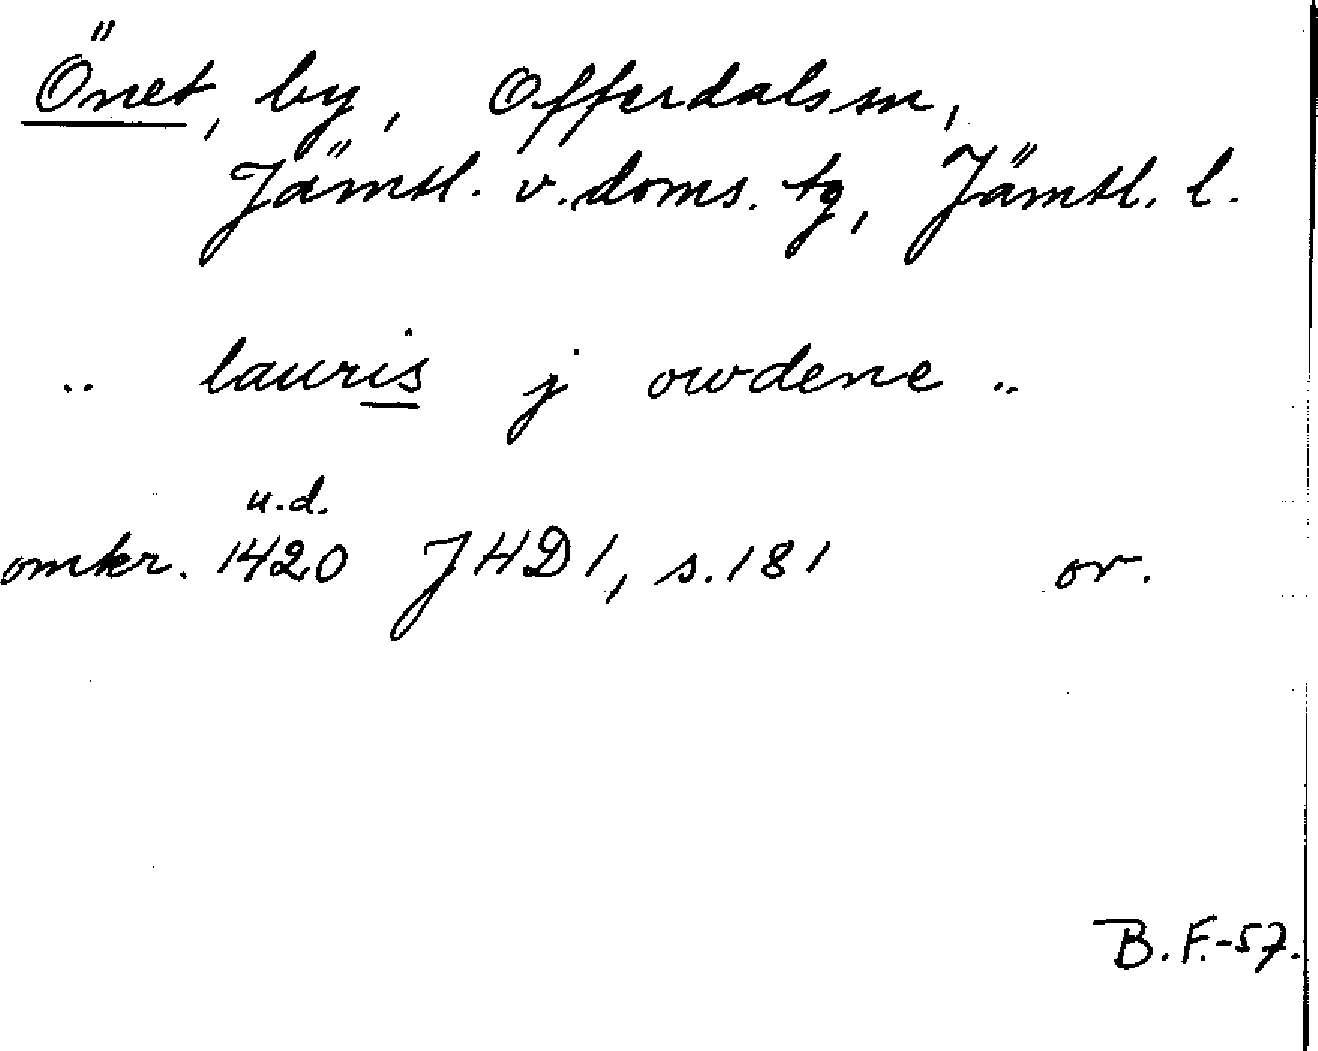 Önet, by, Offerdals sn,
Jämtl. v. doms. tg, Jämtl. l.
.. lauris j owdene ..
u.d.
omkr. 1420 JHD 1, s. 181 or.
B.F.-57.